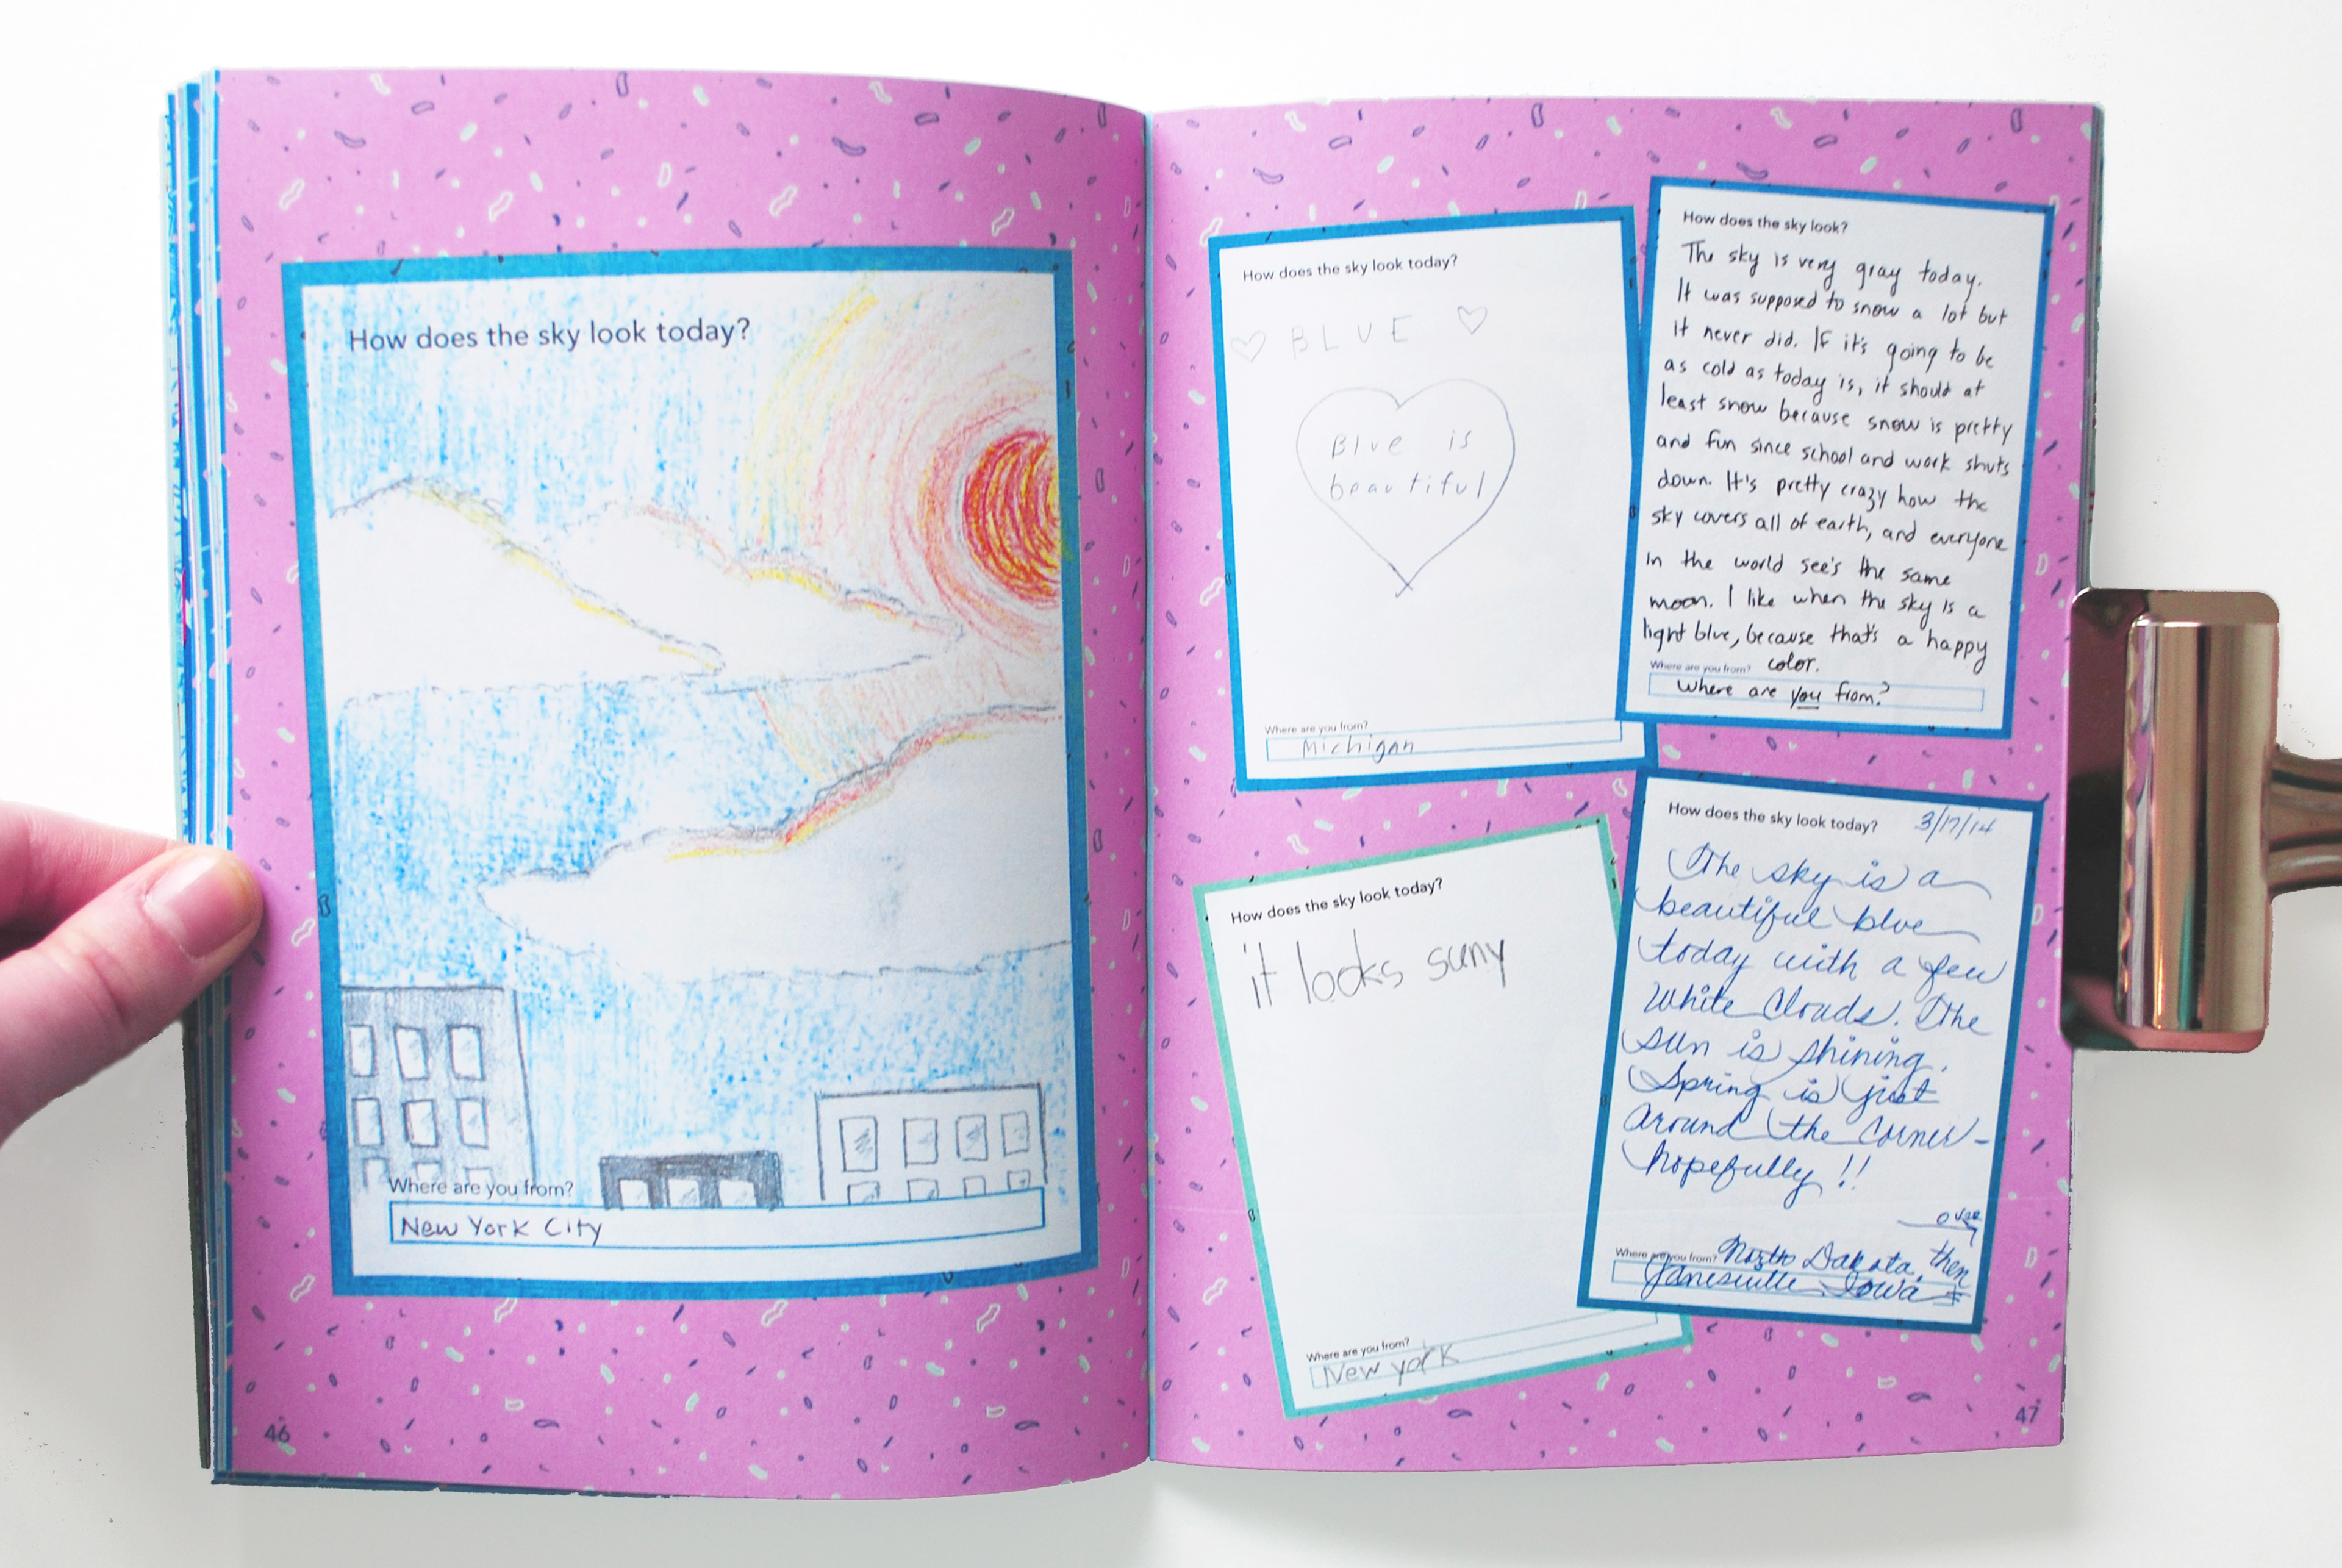 How does the sky look today?
Where are you from?
New York City
46
How does the sky look today?
BLUE
Blue is
beautiful
Where are you from?
Michigan
How does the sky look?
The sky is very gray today.
It was supposed to snow a lot but
it never did. If it's going to be
as cold as today is, it should at
least snow because snow is pretty
and fun since school and work shuts
down. It's pretty crazy how the
sky covers all of earth, and everyone
in the world see's the same
moon. I like when the sky is a
light blue, because that's a happy
color.
Where are you from?
Where are you from?
How does the sky look today?
it looks suny
Where are you from?
New york
How does the sky look today?
3/17/14
The sky is a
beautiful blue
today with a few
white clouds. The
sun is shining.
Spring is just
around the corner-
hopefully!!
over
Where are you from?
North Dakota, then
Janesville Iowa
47